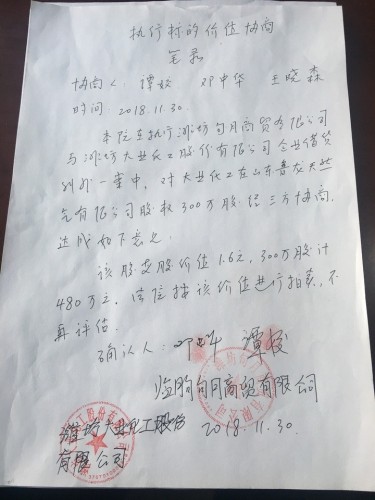 执行标的价值协商
笔录
协商人 谭姣 邓中华 王晓森
时间 2018.11.30.
本院在执行潍坊旬月商贸有限公司
与潍坊大业化工股份有限公司企业借贷
纠纷一案中，对大业化工在山东普龙天然
气有限公司股权300万股经三方协商，
达成如下意见
该股变股价值1.6元，300万股计
480万元，法院按该价值进行拍卖，不
再评估.
确认人： 谭姣
临朐旬月商贸有限公司
潍坊大业化工股份 2018.11.30.
有限公司